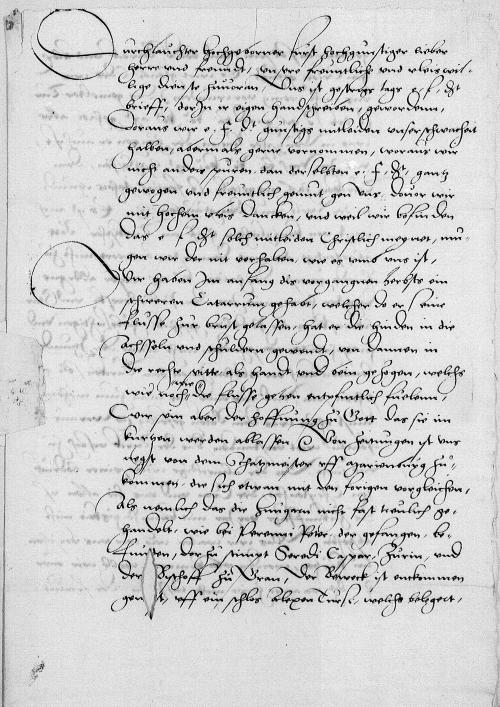 Durchlauchter hochgeborner furst hochgunstiger lieber
herre vnd freundt, vnsere freuntliche vnd vleis wil-
lige dienste zuuoran, Vns ist gestrigs tags e f dht
brieff, dorJn ir eigen handtschreiben, gewordenn,
Doraus wir e. f. dht gunstigs mitleiden vnser schwacheit
halben, abermals gerne vornommen, woraus wir
nicht anders spuren, dan derselbten e. f. dht, gantz
gewogen vnd freuntlich gemut gen vns, douor wir
mit hochem vleis dancken, vnd weil wir befinden
das e f dht solch mitleiden Christlich meynet, mu-
gen wir der nit vorhalten, wie es vmb vns ist,
Wir haben Jm anfang dis vorgangnen herbsts ein
schweren Catarrum gehabt, welcher do er seine
flusse zur brust gelassen, hat er die hinden in die
Achsseln vnd schuldern gewendt, von dannen in
die rechte seitte als handt vnd bein gezogen, welchs
wie noch die flusse gehen entpfintlich fuelenn,
Wir sein aber der hoffnung zu Gott das sie im
kurtzen, werden ablassen Von zeitungen ist vns
negst von dem Schatzmeister vff Marienburg zu-
kommen, die sich etwan mit den forigen vorgleichen,
Als nemlich das die Hungern nicht fast treulich ge-
handelt, wie bei Perenny Peter, der gefangen, be-
funden, der zu stimpt Seredi Caspar, Zurin, vnd
der Bischoff zu Gran, Der ist entkommen
vff ein schlos Alexen Tursi, welchs belegert,